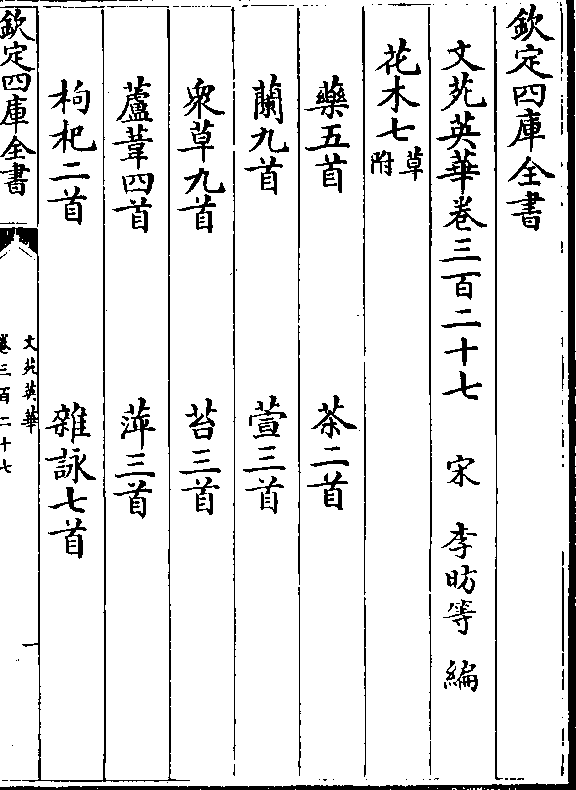 欽定四庫全書
文苑英華卷三百二十七 宋 李昉等 編
花木七草附
藥五首 茶二首
蘭九首 萱三首
衆草九首 苔三首
蘆葦四首 萍三首
枸杞二首 雜詠七首
欽定四庫全書
文苑英華
卷三百二十七
一